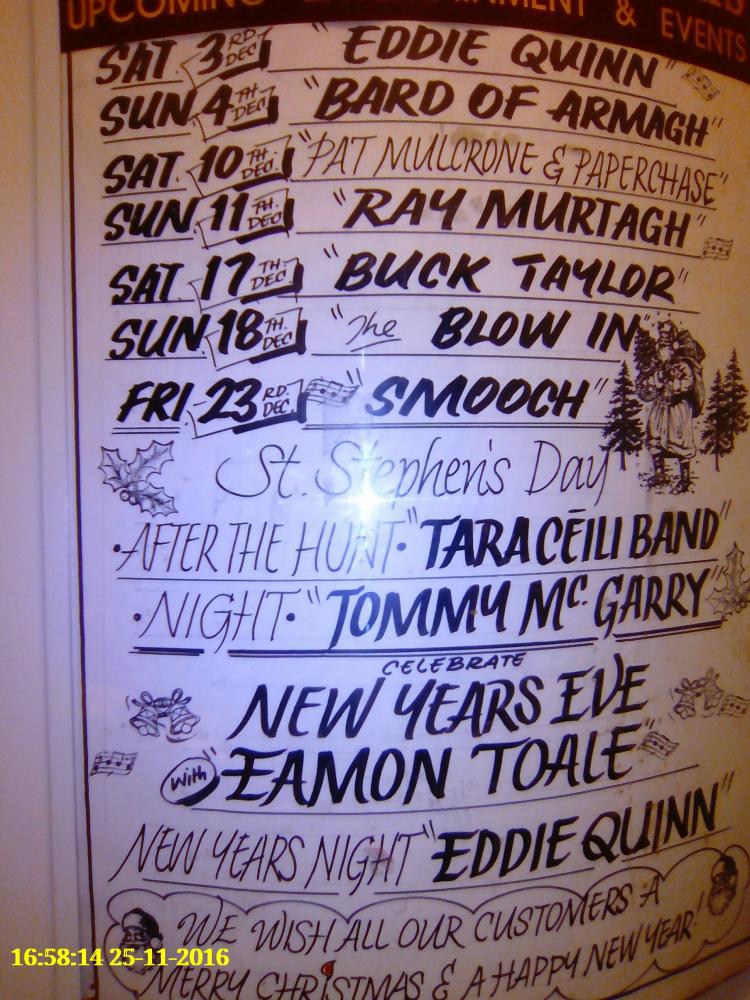 UPCOMING ENTERTAINMENT & EVENTS
SAT 3RD DEC "EDDIE QUINN"
SUN 4TH DEC "BARD OF ARMAGH"
SAT 10TH DEC "PAT MULCRONE & PAPERCHASE"
SUN 11TH DEC "RAY MURTAGH"
SAT 17TH DEC "BUCK TAYLOR"
SUN 18TH DEC "The BLOW IN"
FRI 23RD DEC "SMOOCH"
St. Stephen's Day
•AFTER THE HUNT• "TARA CĒILI BAND"
•NIGHT• "TOMMY Mc. GARRY"
CELEBRATE
NEW YEARS EVE
With "EAMON TOALE"
NEW YEARS NIGHT "EDDIE QUINN"
WE WISH ALL OUR CUSTOMERS A
MERRY CHRISTMAS & A HAPPY NEW YEAR!
16:58:14 25-11-2016